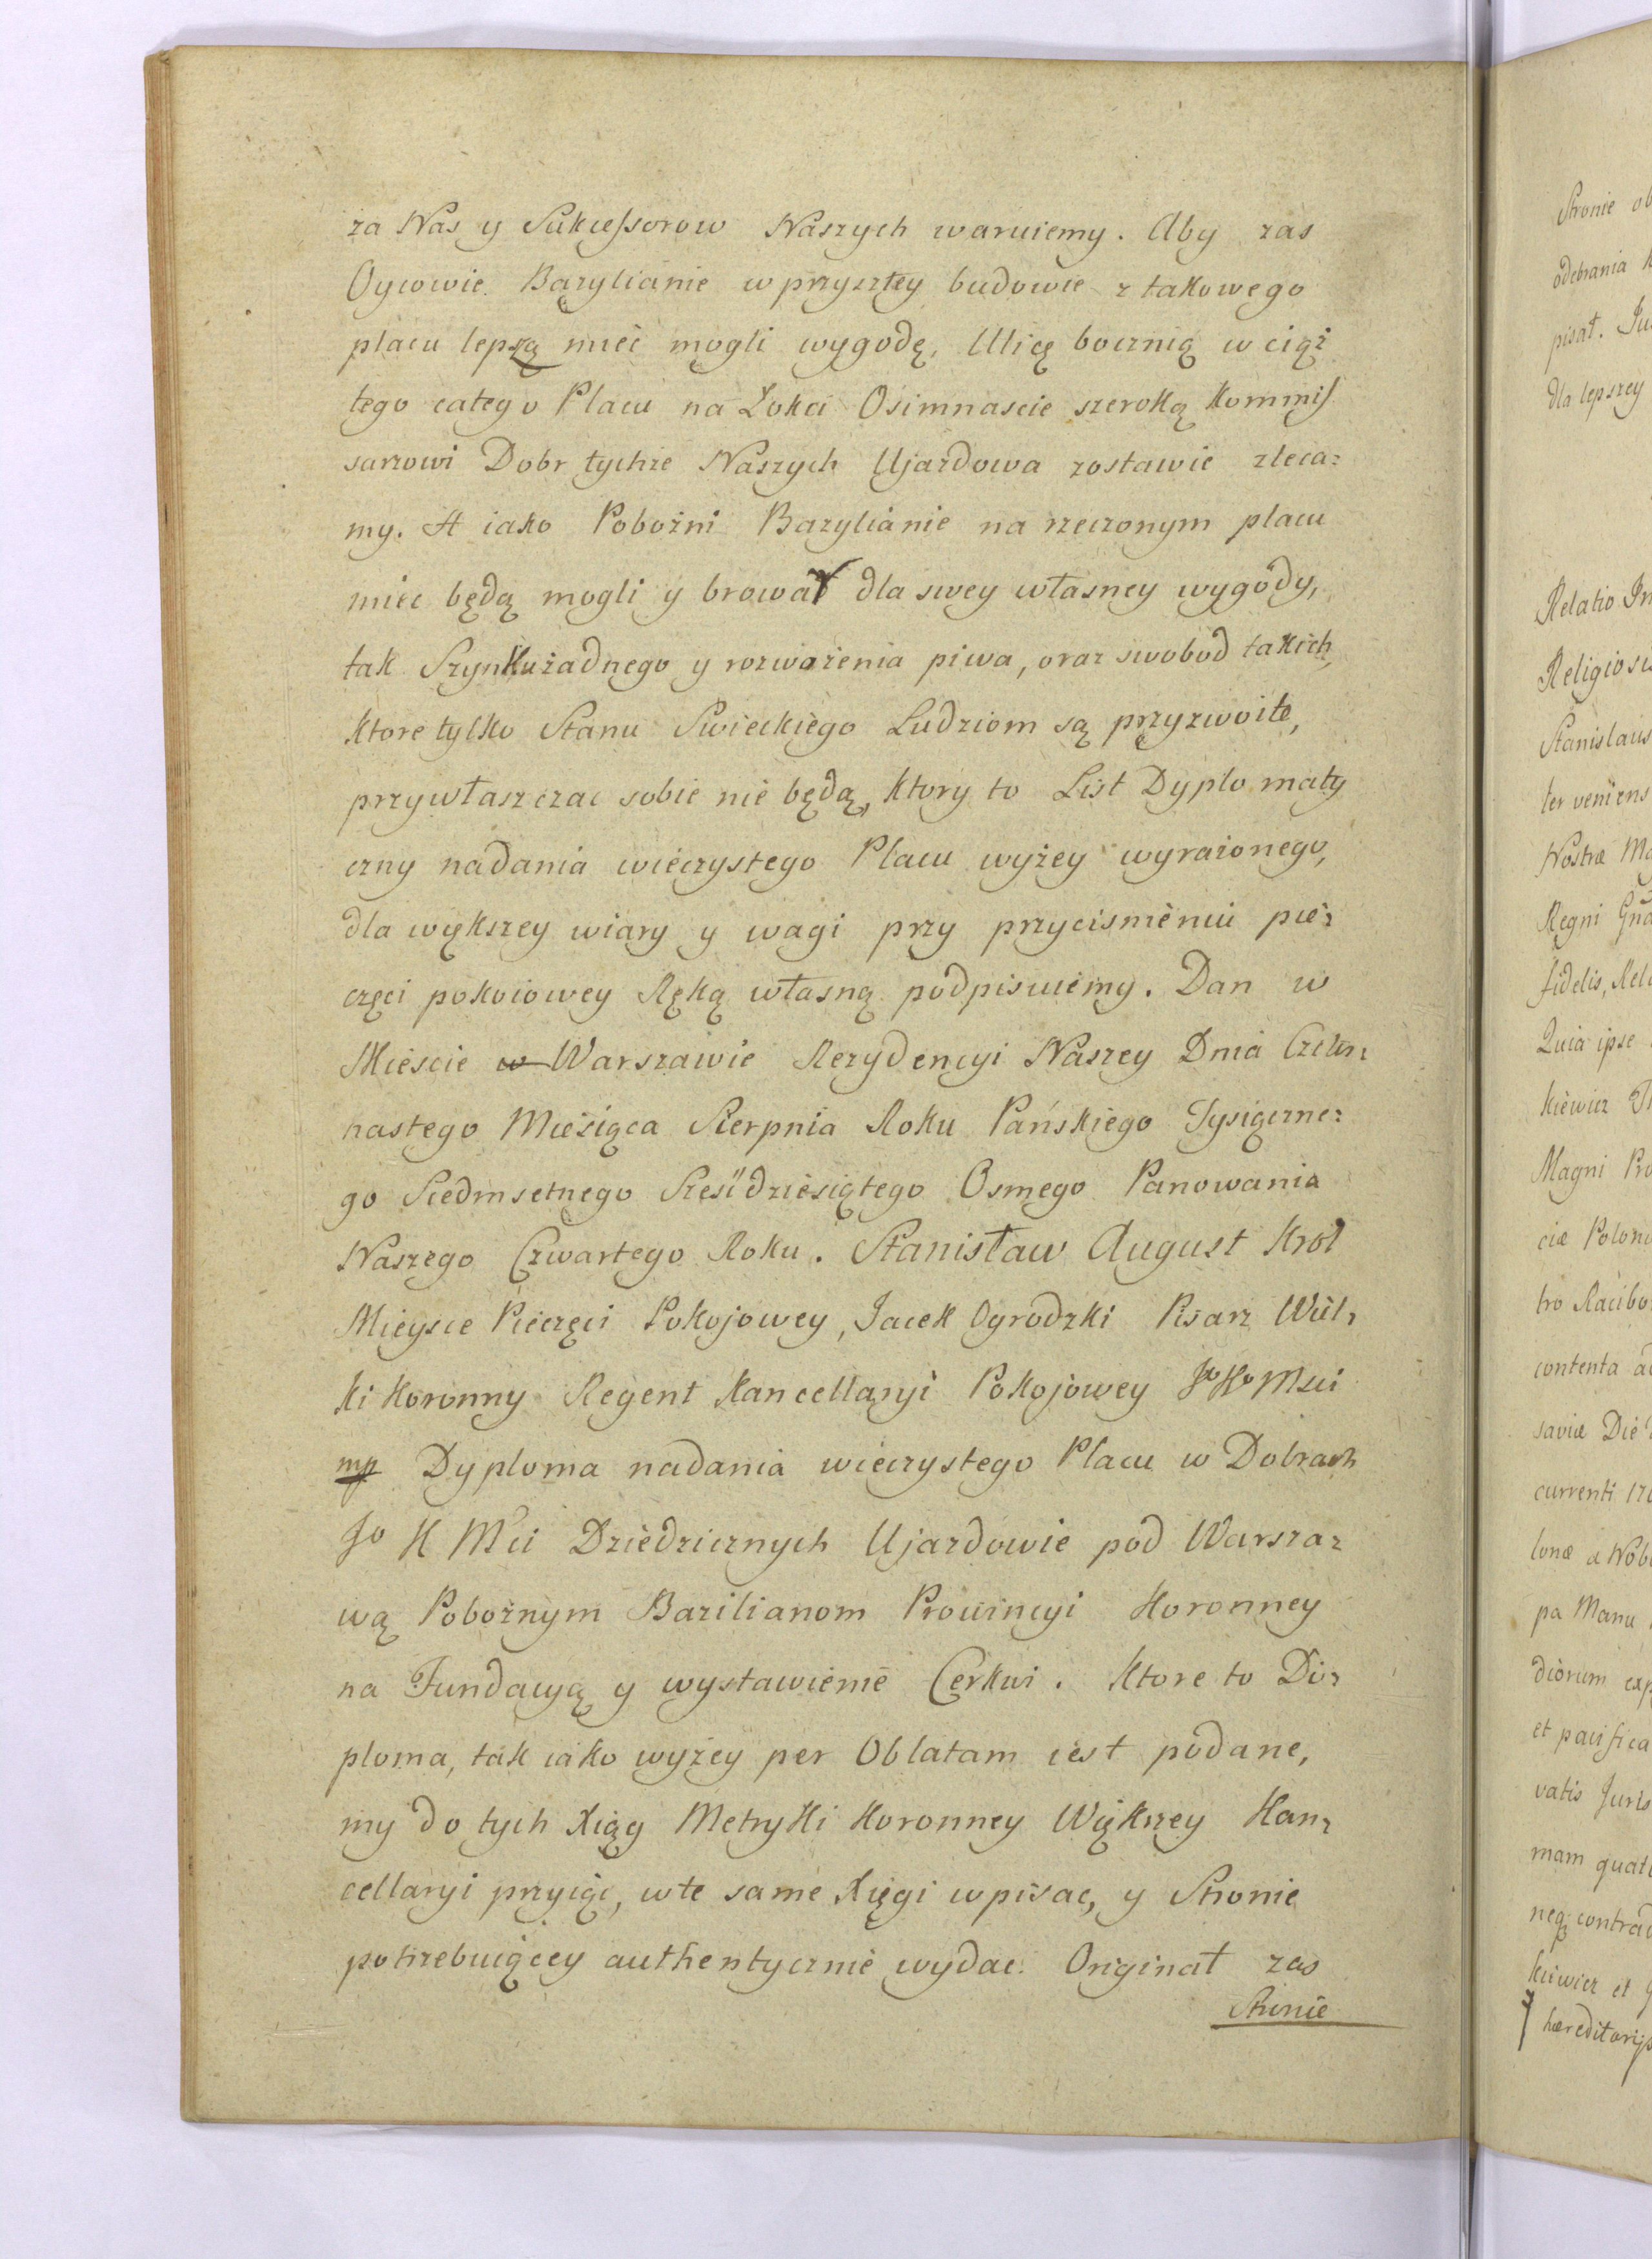 za Nas y Sukcessorow Naszych waruiemy. Aby zas
Oycowie Bazylianie w przyszłey budowie z takowego
placu lepszą mieć mogli wygodę, Ulicę bocznią w ciąż
tego całego Placu na Łokci Osimnascie szeroką Kommis
sarzowi Dobr tychże Naszych Ujazdowa zostawic zleca=
my. A iako Pobożni Bazylianie na rzeczonym placu
miec będą mogli y browar dla swey własney wygody,
tak Szynku żadnego y rozwożenia piwa, oraz swobod takich,
ktore tylko Stanu Swieckiego Ludziom są przyzwoite,
przywłaszczac sobie nie będą, Ktory to List Dyplomaty
czny nadania wieczystego Placu wyżey wyrażonego,
dla większey wiary y wagi przy przycisnieniu pie=
częci pokoiowey Ręką własną podpisuiemy. Dan w
Miescie w Warszawie Rezydencyi Naszey Dnia Czter=
nastego Miesiąca Sierpnia Roku Pańskiego Tysiączne=
go Siedmsetnego Sześćdziesiątego Osmego Panowania
Naszego Czwartego Roku. Stanisław August Krol
Mieysce Pieczęci Pokojowey, Jacek Ogrodzki Pisarz Wiel=
ki Koronny Regent Kancellaryi Pokojowey Jo Ko Msci
mp Dyploma nadania wieczystego Placu w Dobrach
Jo K Mci Dziedzicznych Ujazdowie pod Warsza=
wą Pobożnym Bazilianom Prowincyi Koronney
na Fundacyą y wystawienie Cerkwi. Ktore to Di=
ploma, tak iako wyżey per Oblatam iest podane,
my do tych Xiąg Metryki Koronney Większey Kan=
cellaryi przyięc, w te same Xięgi wpisac, y Stronie
potrzebuiącey authentycznie wydac. Originał zas
Stronie
Stronie
odebrania
pisał.
dla lepszey
Relatio
Stanislaus
ter veniens
Nostræ
Regni
fidelis,
Quia ipse
kiewicz
Magni
ciæ
tro
contenta
saviæ Die
currenti
pa Manu
diorum
et pacifica
vatis
mam
neq
kiewicz et
hæreditarijs